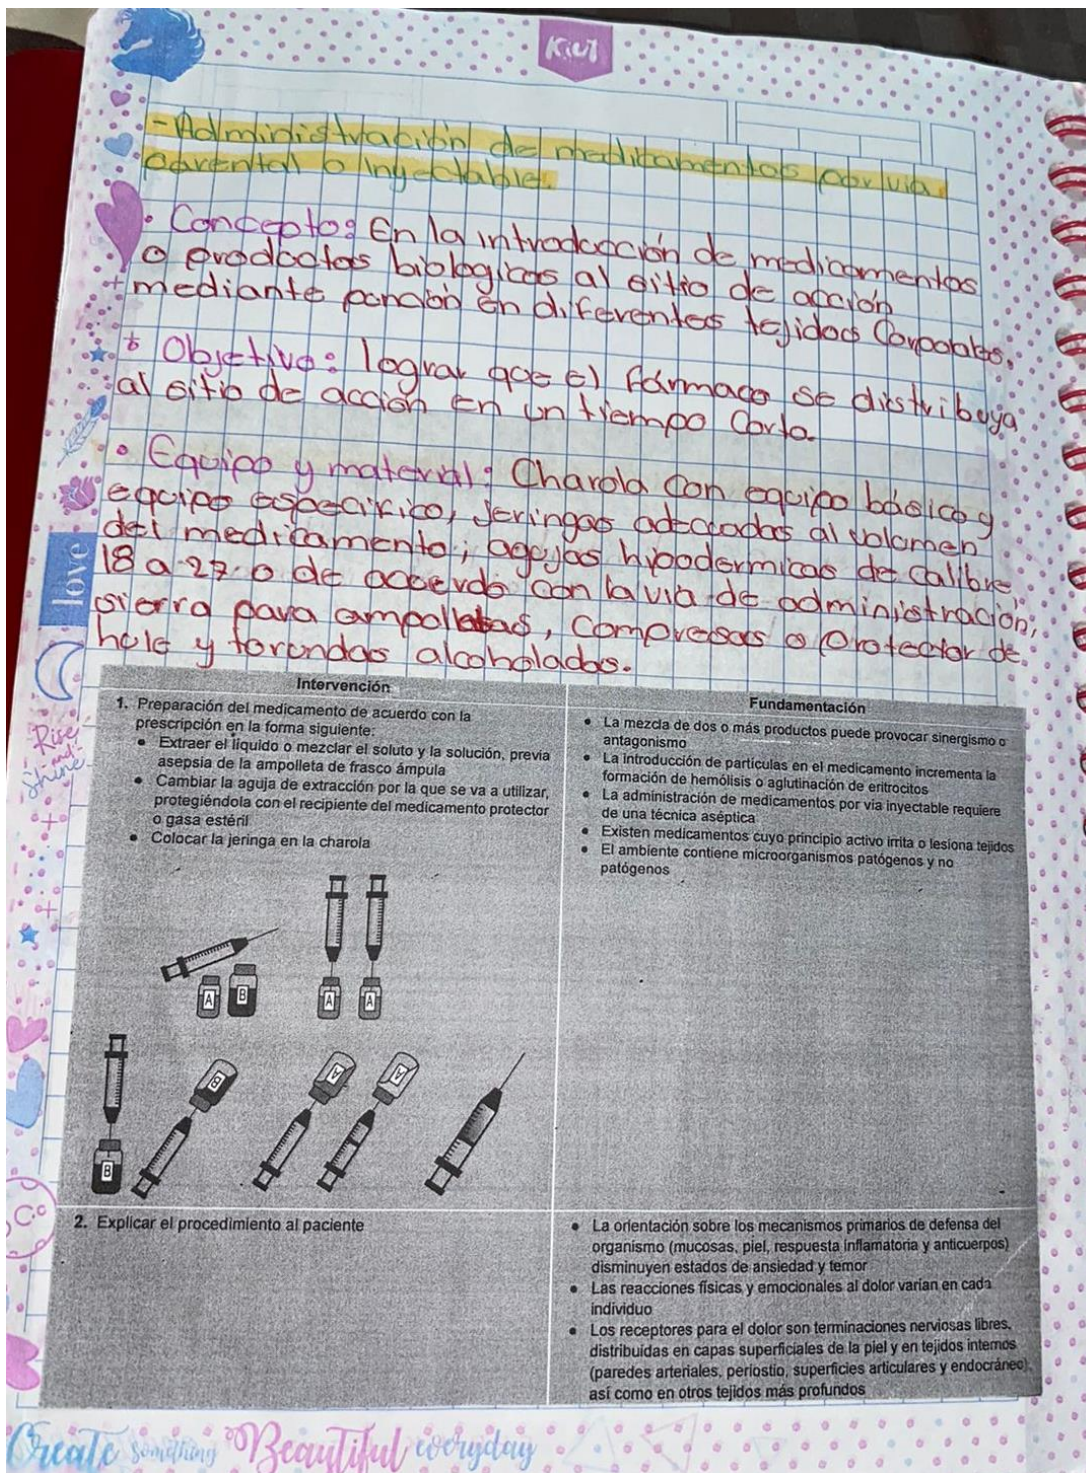 Kiut
-Administración de medicamentos por via
parental o Inyectable.
• Concepto: En la introducción de medicamentos
o productos biologicos al sitio de acción
mediante punción en diferentes tejidos Corporales.
• Objetivo: lograr que el fármaco se distribuya
al sitio de acción en un tiempo Corto.
• Equipo y material: Charola con equipo básico y
equipo especifico, jeringas adecuadas al volumen
del medicamento; agujas hipodermicas de calibre
18 a 27 o de acuerdo con la via de administración;
sierra para ampolletas, compresas o protector de
hule y torundas alcoholadas.
love
Rise
and
Shine
Intervención
1. Preparación del medicamento de acuerdo con la
prescripción en la forma siguiente:
• Extraer el líquido o mezclar el soluto y la solución, previa
asepsia de la ampolleta de frasco ámpula
• Cambiar la aguja de extracción por la que se va a utilizar,
protegiéndola con el recipiente del medicamento protector
o gasa estéril
• Colocar la jeringa en la charola
Fundamentación
• La mezcla de dos o más productos puede provocar sinergismo o
antagonismo
• La introducción de partículas en el medicamento incrementa la
formación de hemólisis o aglutinación de eritrocitos
• La administración de medicamentos por vía inyectable requiere
de una técnica aséptica
• Existen medicamentos cuyo principio activo irrita o lesiona tejidos
• El ambiente contiene microorganismos patógenos y no
patógenos
A B A A
B B A A
2. Explicar el procedimiento al paciente
• La orientación sobre los mecanismos primarios de defensa del
organismo (mucosas, piel, respuesta inflamatoria y anticuerpos)
disminuyen estados de ansiedad y temor
• Las reacciones físicas y emocionales al dolor varían en cada
individuo
• Los receptores para el dolor son terminaciones nerviosas libres,
distribuidas en capas superficiales de la piel y en tejidos internos
(paredes arteriales, periostio, superficies articulares y endocráneo),
así como en otros tejidos más profundos
Create something Beautiful everyday